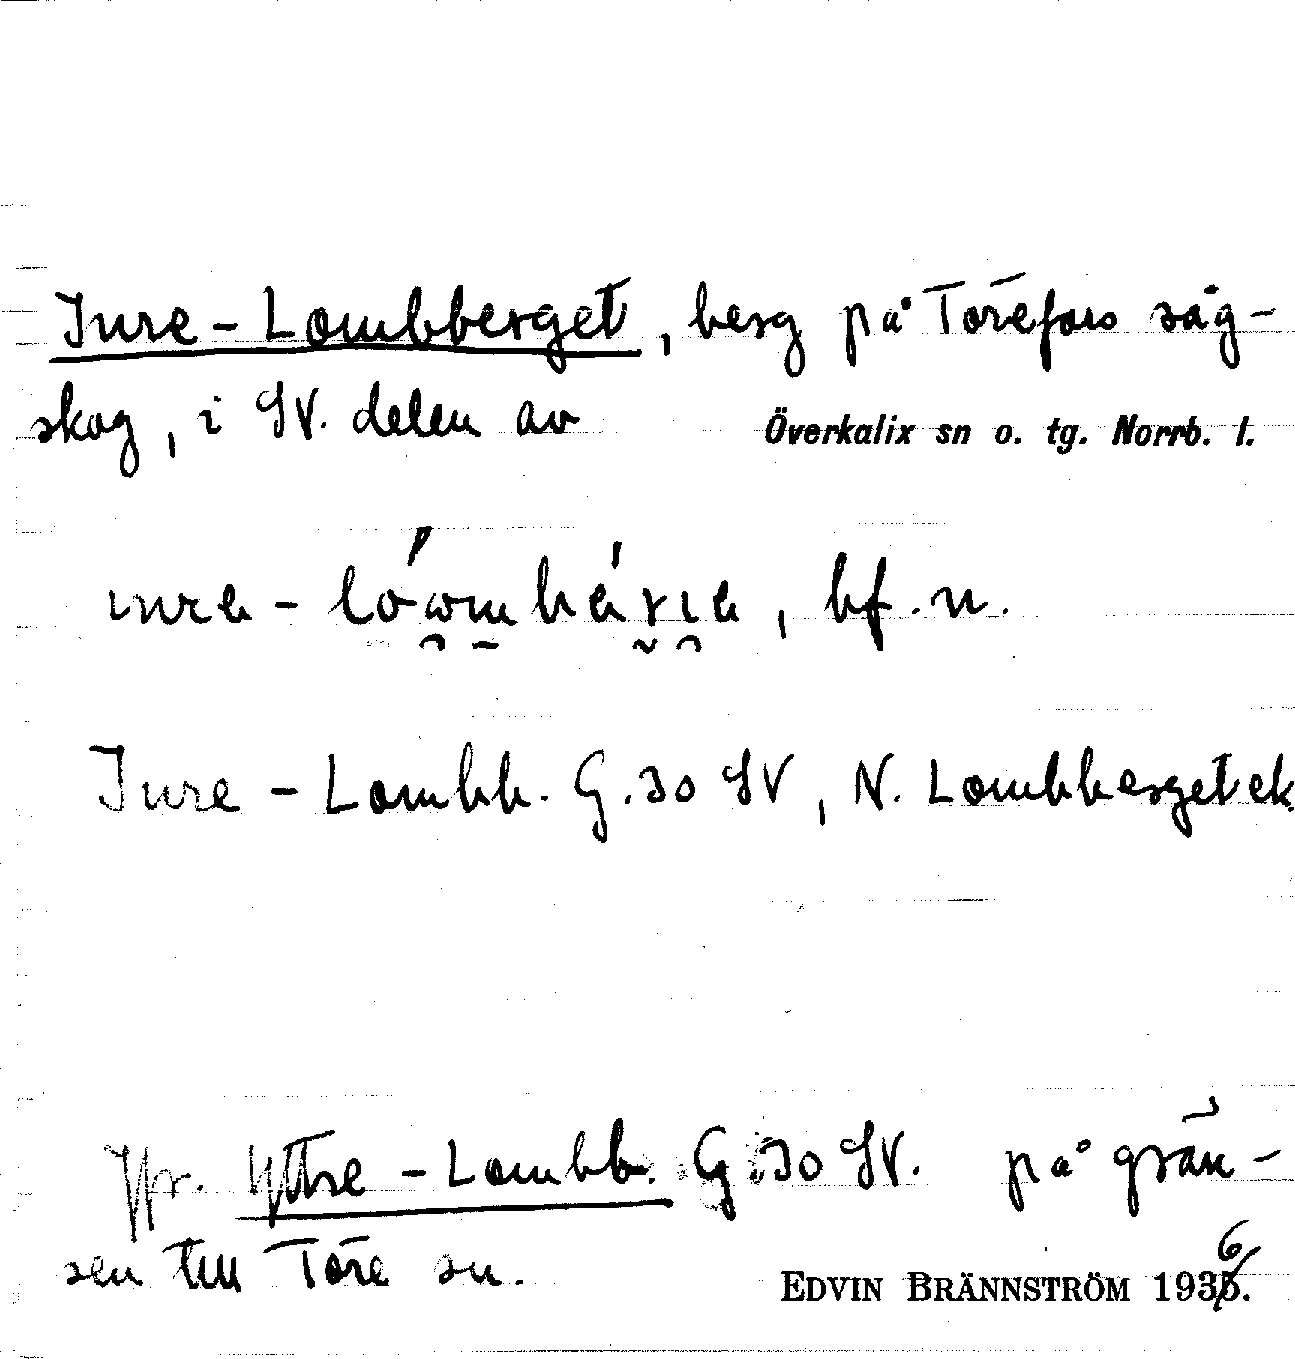 Inre-Lombberget, berg på Törefors såg-
skog, i SV. delen av Överkalix sn o. tg. Norrb. l.
bf. n.
Inre-Lombb. G. 30 SV, N. Lombberget ek
Jfr. Yttre-Lombb. G. 30 SV. på grän-
sen till Töre sn.
EDVIN BRÄNNSTRÖM 1936.